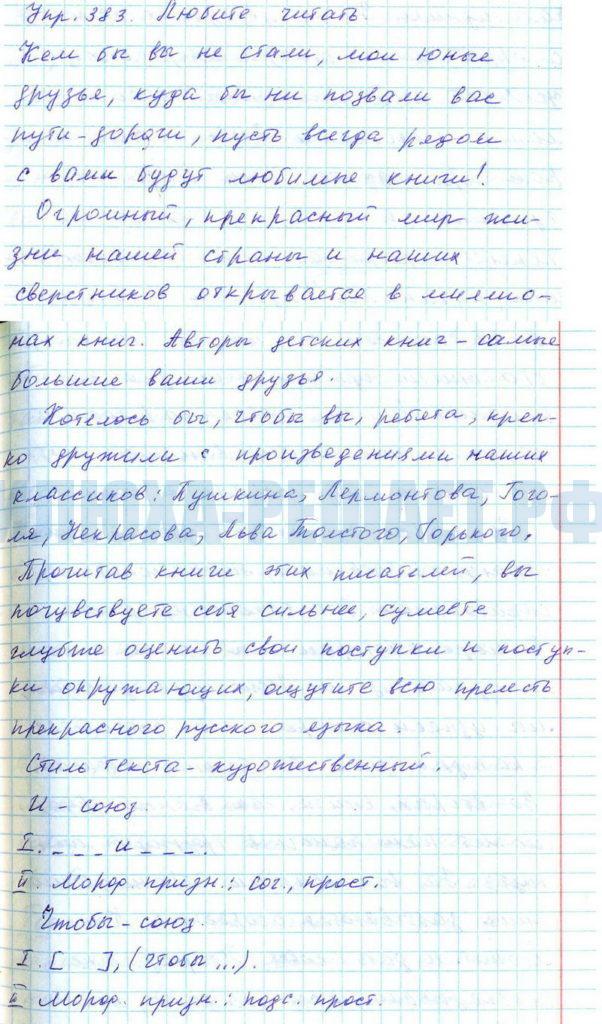 Упр. 383. Любите читать.
Кем бы вы не стали, мои юные
друзья, куда бы ни позвали вас
пути-дороги, пусть всегда рядом
с вами будут любимые книги!
Огромный, прекрасный мир жи-
зни нашей страны и наших
сверстников открывается в миллио-
нах книг. Авторы детских книг - самые
большие ваши друзья.
Хотелось бы, чтобы вы, ребята, креп-
ко дружили с произведениями наших
классиков: Пушкина, Лермонтова, Гого-
ля, Некрасова, Льва Толстого, Горького.
Прочитав книги этих писателей, вы
почувствуете себя сильнее, сумеете
глубже оценить свои поступки и поступ-
ки окружающих, ощутите всю прелесть
прекрасного русского языка.
Стиль текста - художественный.
И - союз.
I. _ _ _ и _ _ _.
II. Морф. призн.: соч., прост.
Чтобы - союз.
I. [ ], (чтобы ...).
II Морф. призн.: подч. прост.